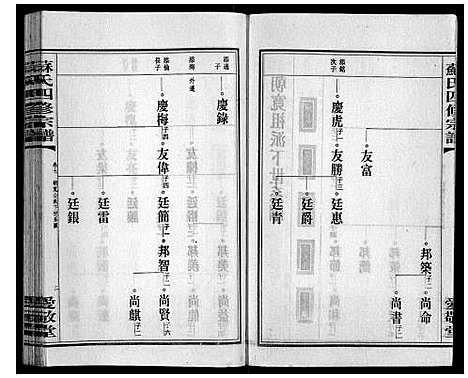 蘇氏四修宗譜
愛敬堂
友富
邦築
尚命
尚書
添銘
次子
慶虎
友勝
廷惠
廷爵
廷青
慶錄
外遷
慶梅
友偉
廷簡
邦智
尚賢
尚麒
廷雷
廷銀
蘇氏四修宗譜
愛敬堂